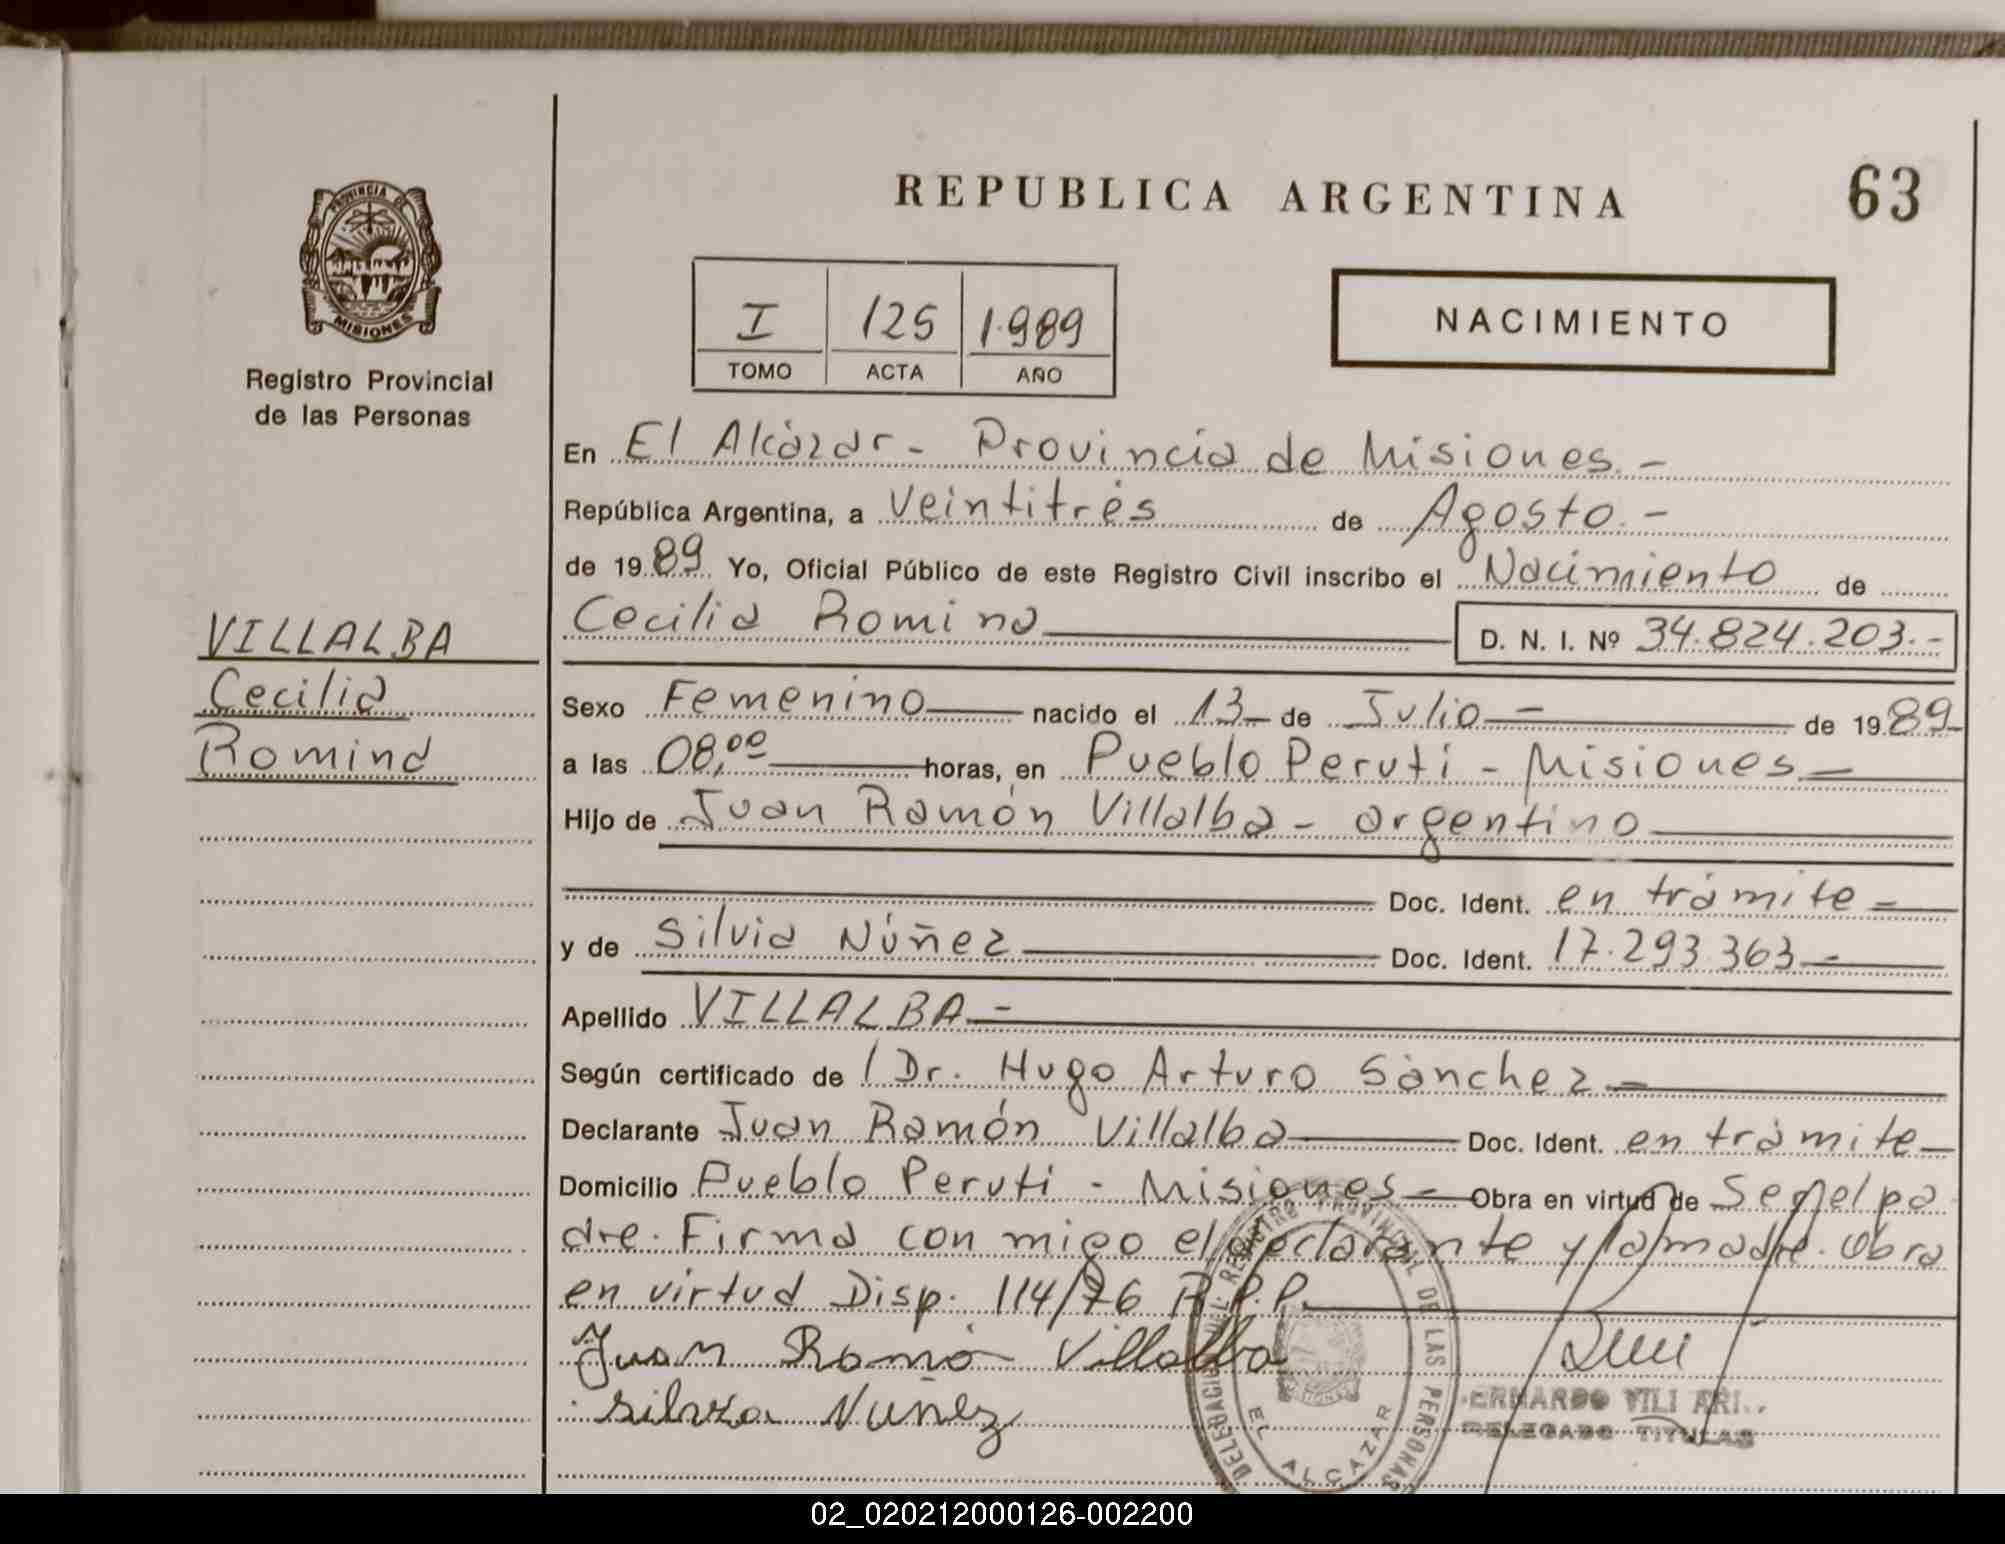 REPUBLICA ARGENTINA
63
PROVINCIA DE
MISIONES
Registro Provincial
de las Personas
I 125 1.989
TOMO ACTA AÑO
NACIMIENTO
En El Alcázar - Provincia de Misiones.-
República Argentina, a Veintitrés de Agosto.-
de 1989 Yo, Oficial Público de este Registro Civil inscribo el Nacimiento de
Cecilia Romina D. N. I. Nº 34.824.203.-
VILLALBA
Cecilia
Romina
Sexo Femenino nacido el 13 de Julio - de 1989
a las 08,00 horas, en Pueblo Peruti - Misiones
Hijo de Juan Ramón Villalba - argentino
Doc. Ident. en trámite -
y de Silvia Núñez Doc. Ident. 17.293.363 -
Apellido VILLALBA -
Según certificado de / Dr. Hugo Arturo Sánchez -
Declarante Juan Ramón Villalba Doc. Ident. en trámite
Domicilio Pueblo Peruti - Misiones - Obra en virtud de Ser el pa
dre. Firma con migo el declarante y la madre. Obra
en virtud Disp. 114/76 R.P.P.
Juan Ramó Villalba
Silvia Nuñez
REGISTRO PROVINCIAL DE LAS PERSONAS
EL ALCAZAR
DELEGADO TITULAR
02_020212000126-002200